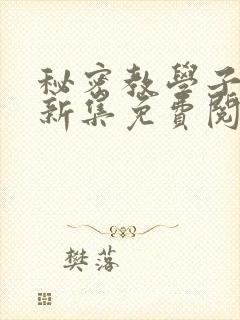 秘密教學子
新集免費閱
樊落